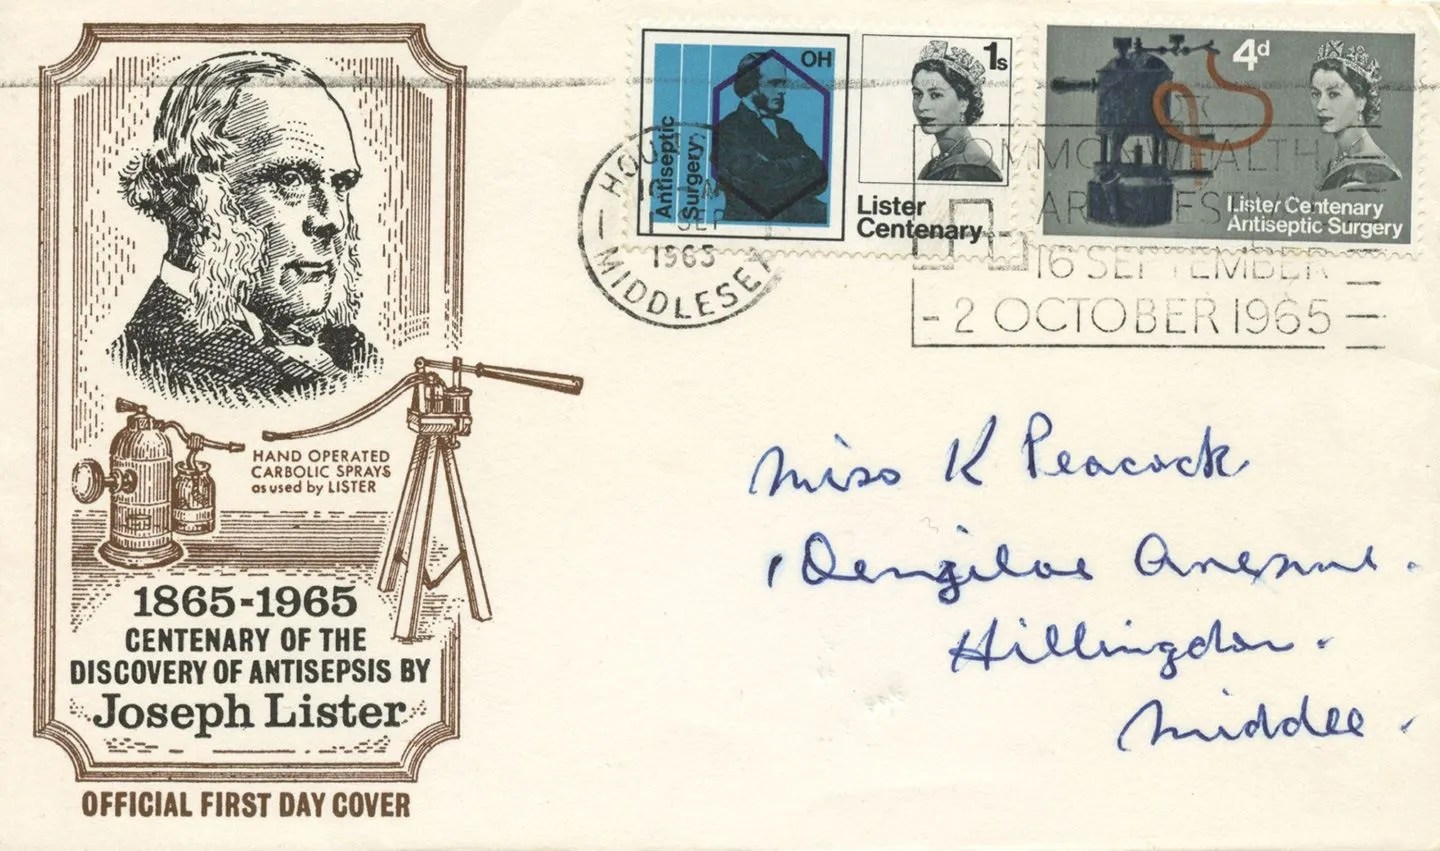 OH
1s
Antiseptic
Surgery
Lister
Centenary
4d
Lister Centenary
Antiseptic Surgery
SEP
1965
MIDDLESEX
COMMONWEALTH
ARTS FESTIVAL
16 SEPTEMBER
- 2 OCTOBER 1965
HAND OPERATED
CARBOLIC SPRAYS
as used by LISTER
1865-1965
CENTENARY OF THE
DISCOVERY OF ANTISEPSIS BY
Joseph Lister
OFFICIAL FIRST DAY COVER
Miss K Peacock
Avenue.
Hillingdon.